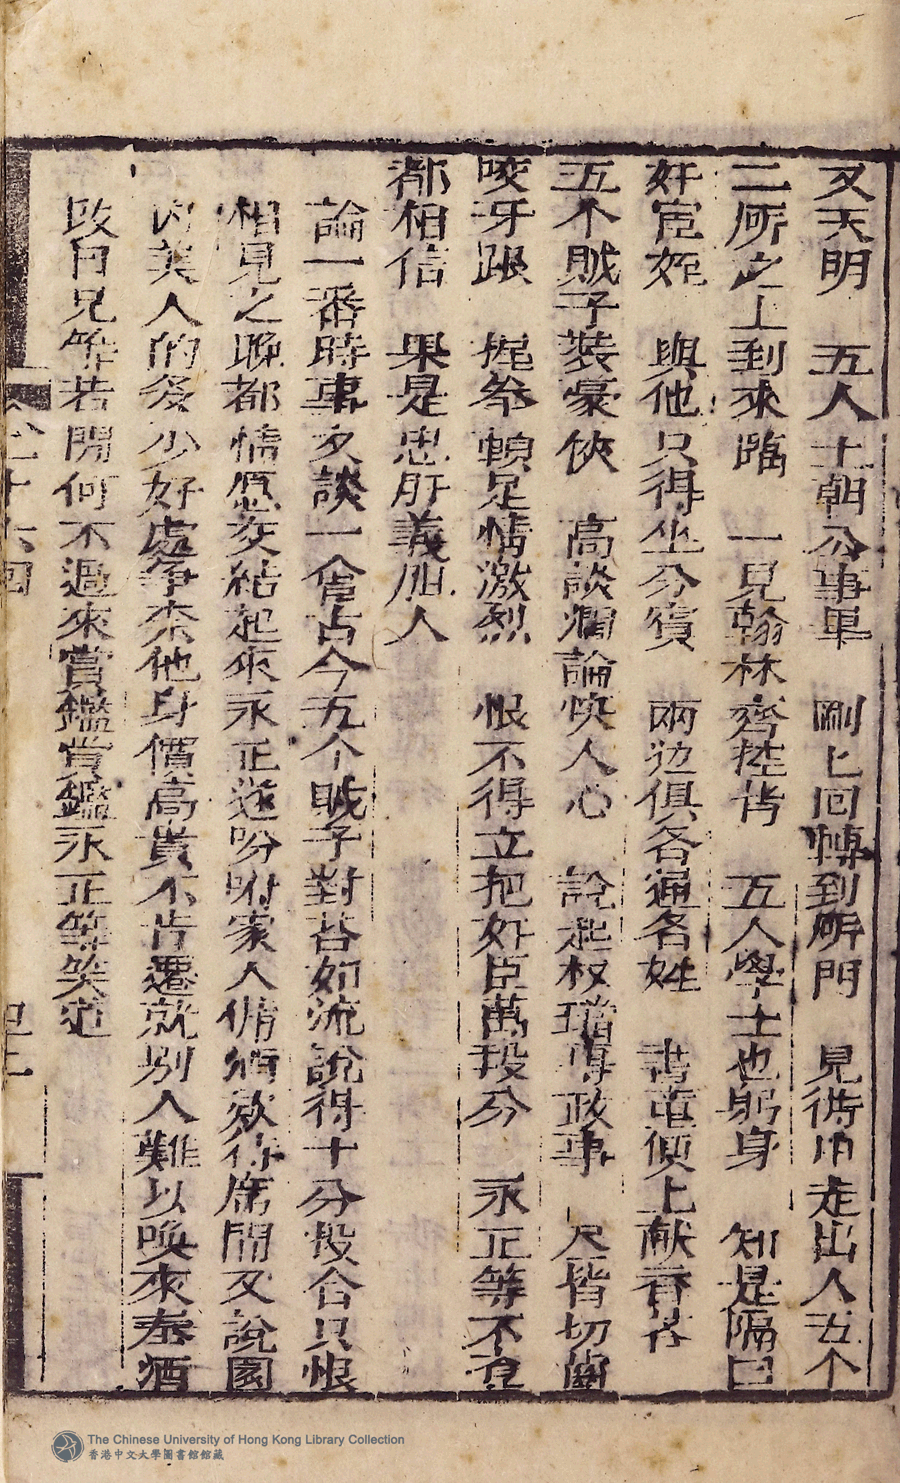 又天明　五人上朝公事畢　剛上回轉到所門　見衙内走出人五个
二所之上到來臨　一見翰林齊控背　五人學士也躬身　知是隔曰
奸宦姪　與他只得坐分賓　兩边俱各通名姓　書童便上献香茗
五个賊子裝豪俠　高談濶論快人心　說起权璫専政事　尽皆切齒
咬牙跟　揑拳頓足情激烈　恨不得立把奸臣萬叚分　永正等不
都相信　果是忠肝義胆人
論一番時事又談一會古今五个賊子對荅如流說得十分投合只恨
相見之晚都情愿交結起來永正遂吩咐家人備酒欵待席間又說園
内美人的多少好處爭柰他身價高貴不肯遷就別人難以喚來奉酒
改日兄等若閒何不過來賞鑑賞鑑永正等笑道
十六回
The Chinese University of Hong Kong Library Collection
香港中文大學圖書館館藏